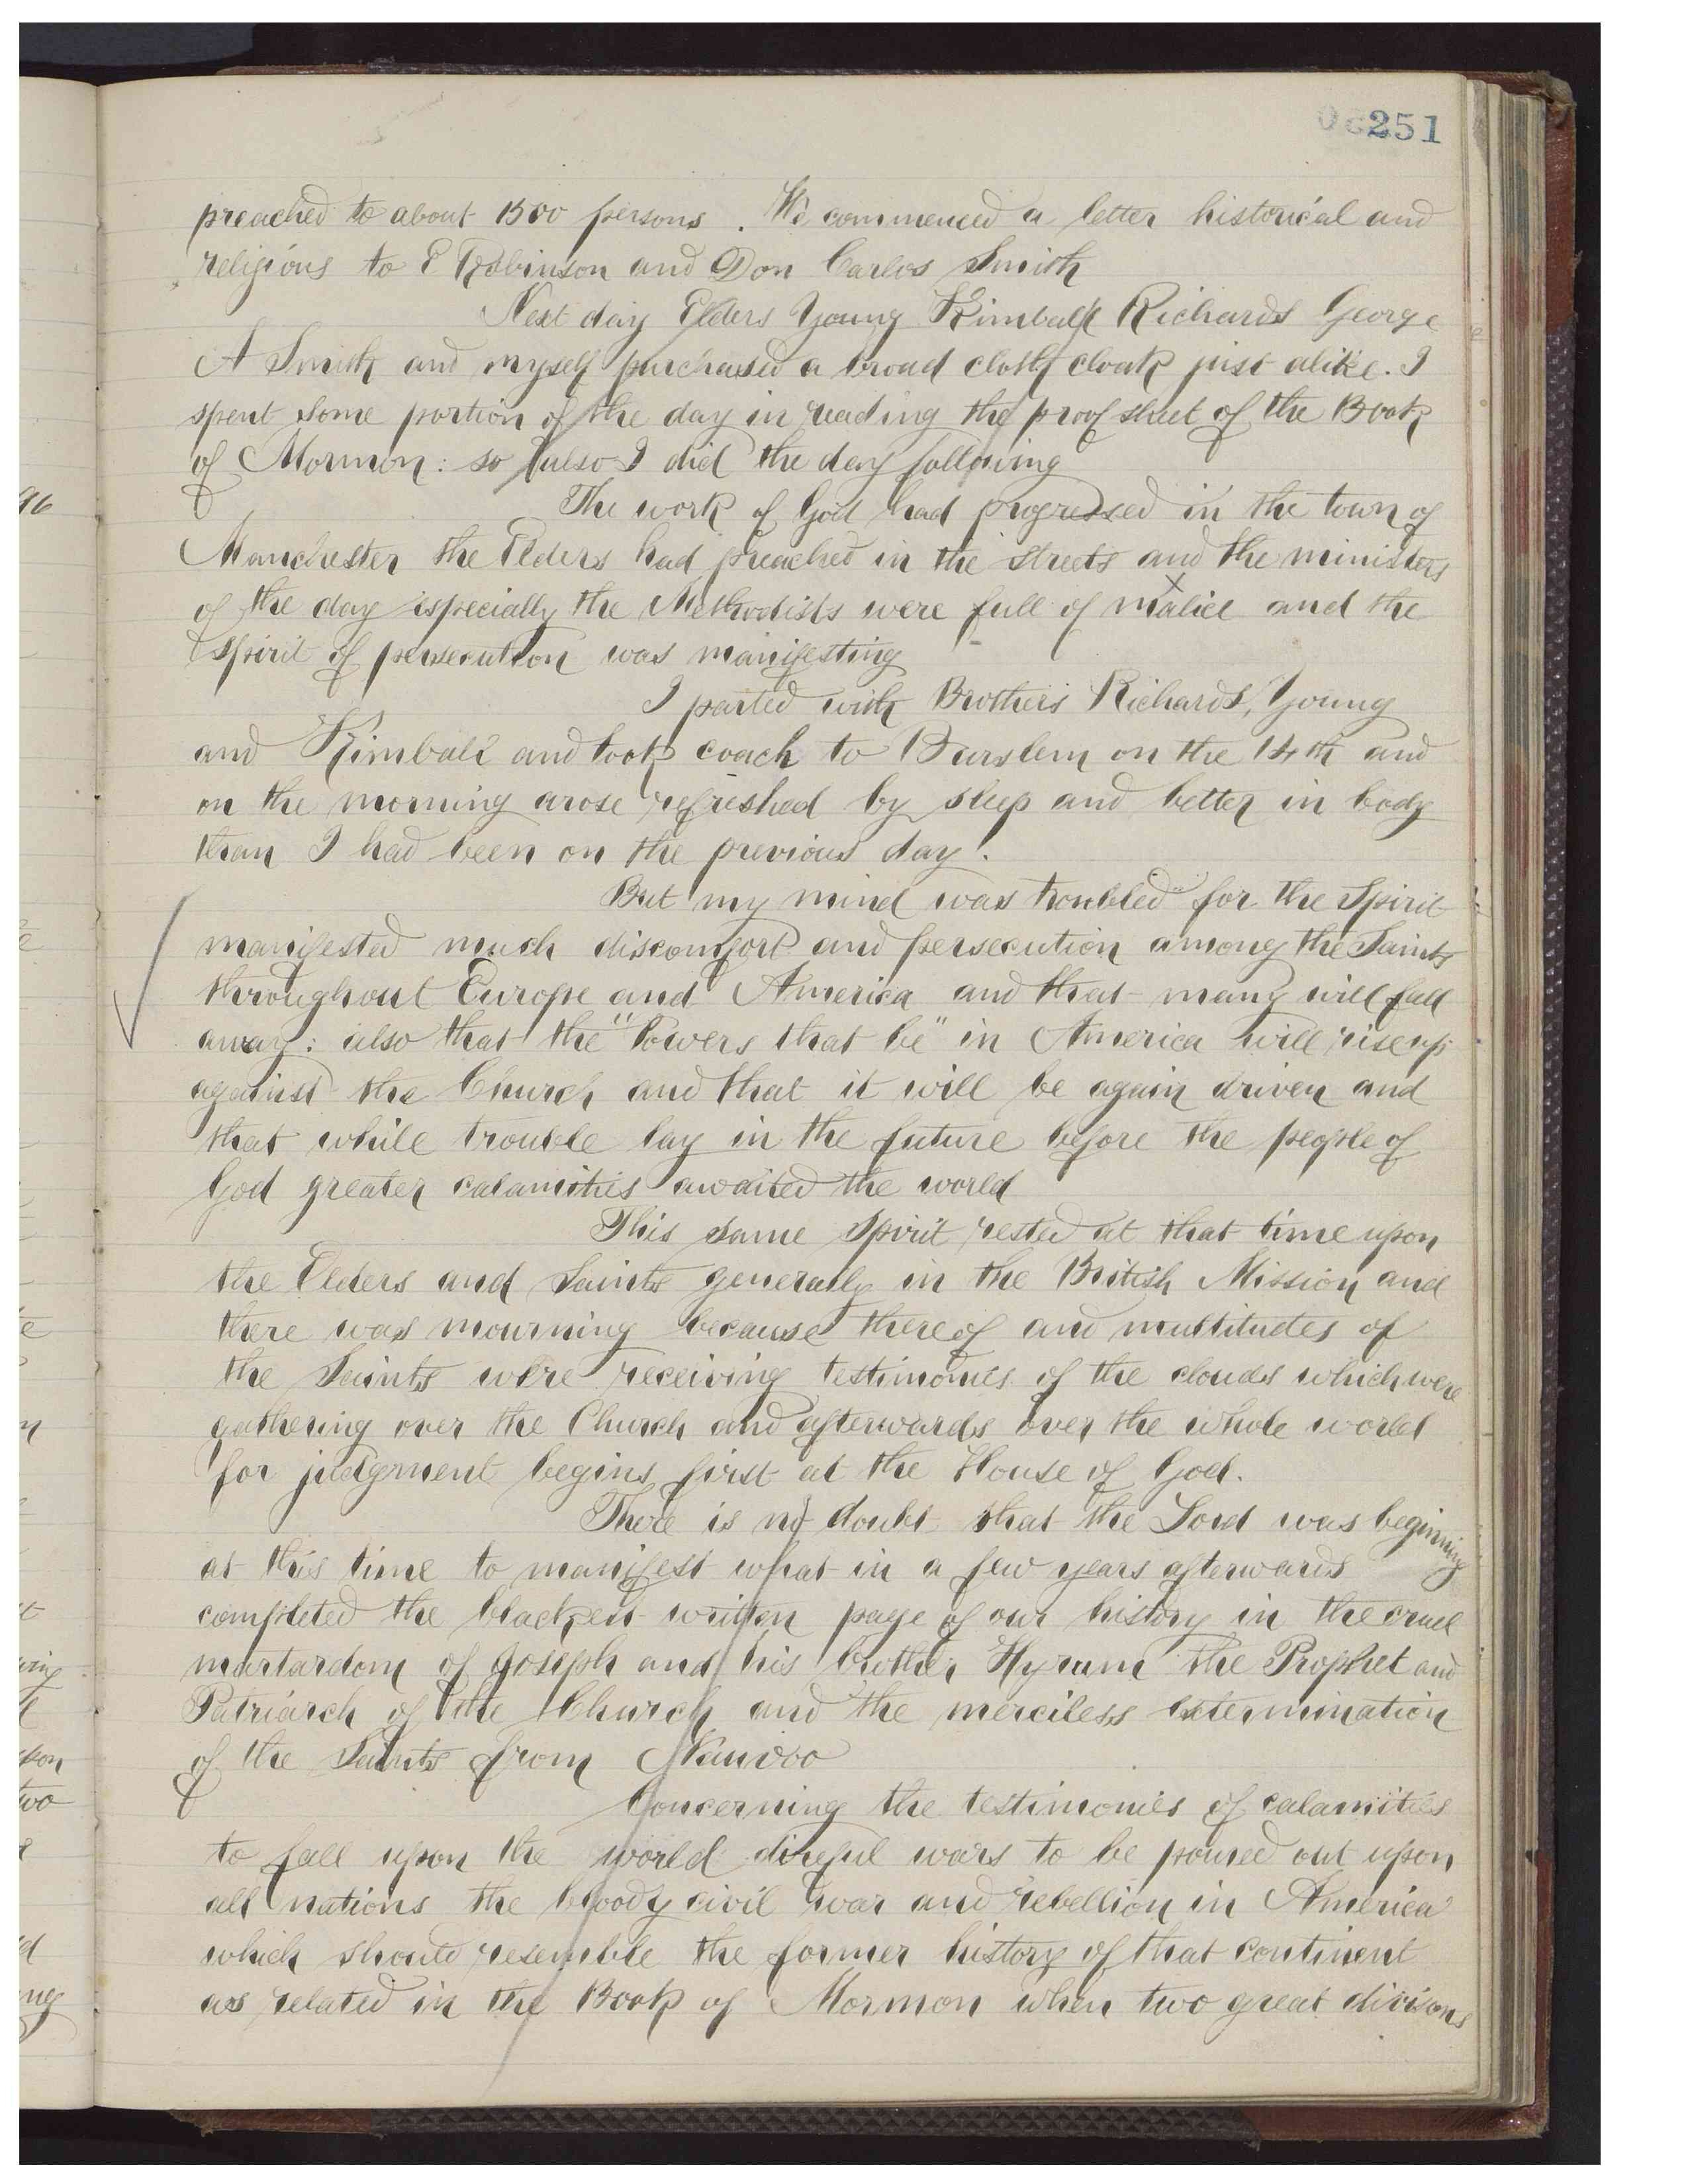 251
preached to about 1500 persons. We commenced a letter historical and
religious to E Robinson and Don Carlos Smith
Next day Elders Young Kimball Richards George
A Smith and myself purchased a broad cloth cloak just alike. I
spent some portion of the day in reading the proof sheet of the Book
of Mormon: so also I did the day following
The work of God had progressed in the town of
Manchester the Elders had preached in the streets and the ministers
of the day especially the Methodists were full of malice and the
spirit of persecution was manifesting
I parted with Brothers Richards, Young
and Kimball and took coach to Burslem on the 14th and
on the morning arose refreshed by sleep and better in body
than I had been on the previous day.
But my mind was troubled for the Spirit
manifested much discomfort and persecution among the Saints
throughout Europe and America and that many will fall
away: also that the "Powers that be" in America will rise up
against the Church and that it will be again driven and
that while trouble lay in the future before the people of
God greater calamities awaited the world
This same Spirit rested at that time upon
the Elders and Saints generally in the British Mission and
there was mourning because thereof and multitudes of
the Saints were receiving testimonies of the clouds which were
gathering over the Church and afterwards over the whole world
for judgment begins first at the House of God.
There is no doubt that the Lord was beginning
at this time to manifest what in a few years afterwards
completed the blackest written page of our history in the cruel
martardom of Joseph and his brother Hyrum the Prophet and
Patriarch of the Church and the merciless extermination
of the Saints from Nauvoo
Concerning the testimonies of calamities
to fall upon the world direful wars to be poured out upon
all nations the bloody civil war and rebellion in America
which should resemble the former history of that continent
as related in the Book of Mormon when two great divisons